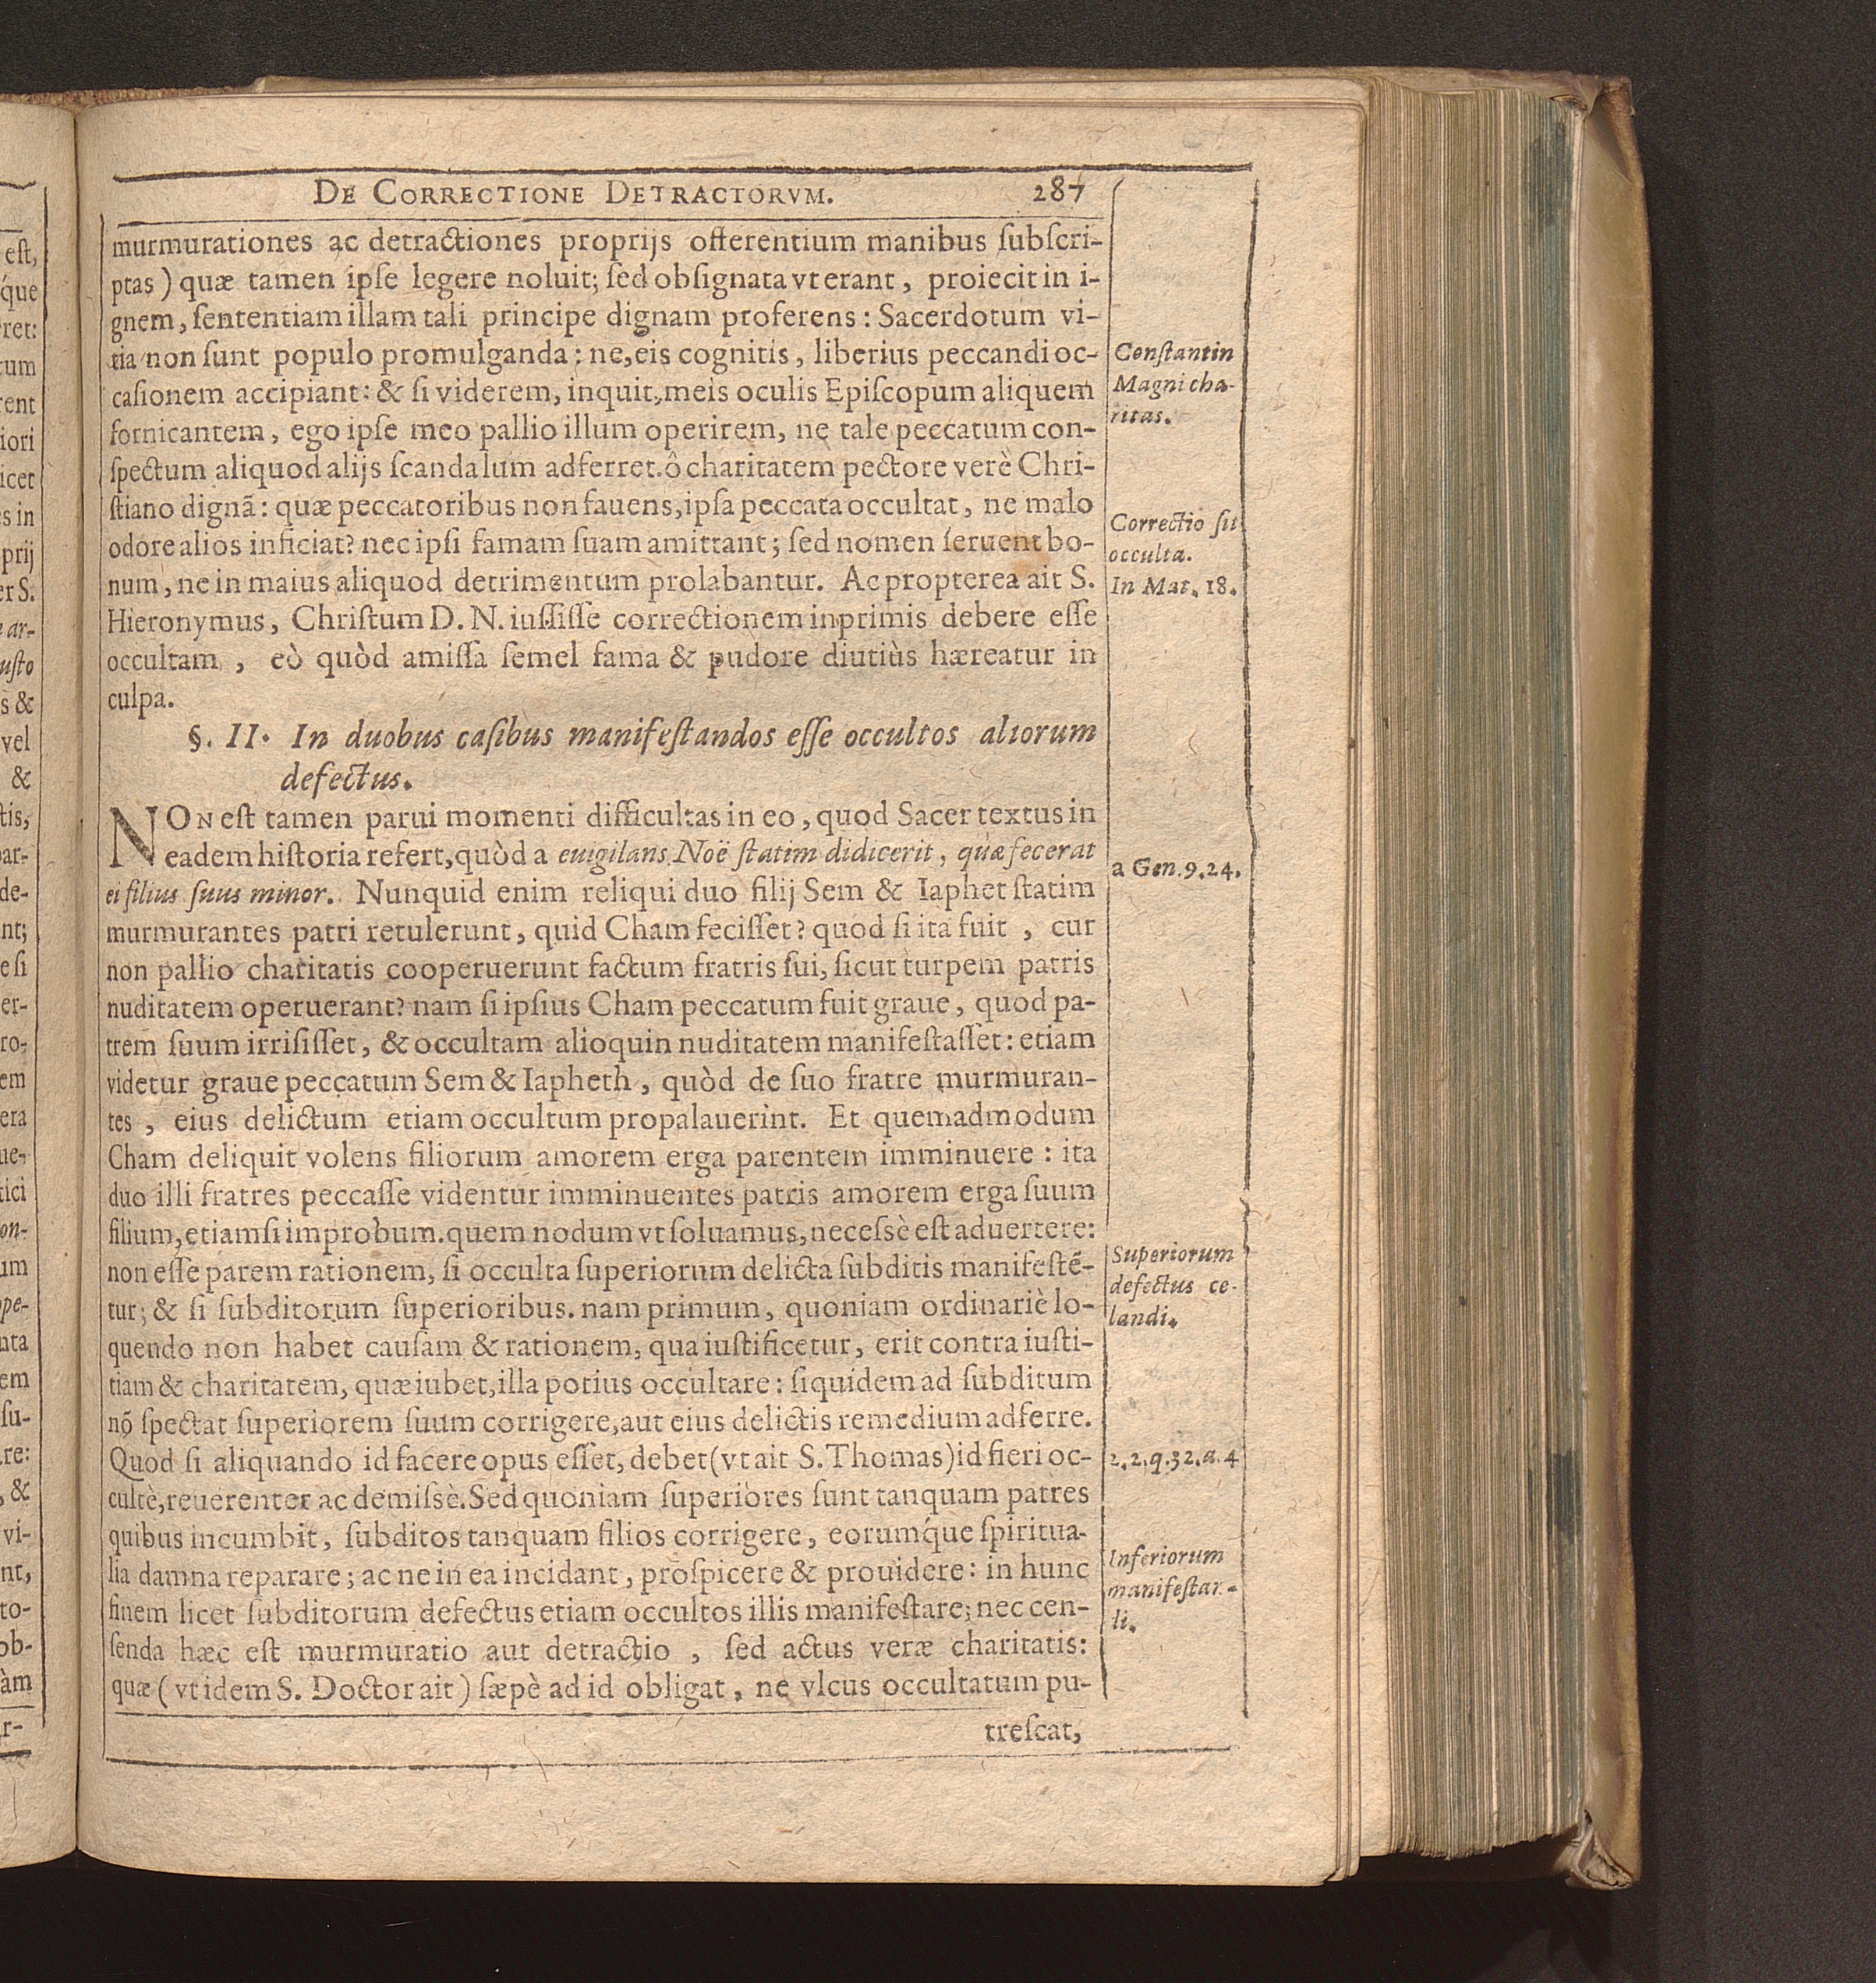 DE CORRECTIONE DETRACTORVM. 287
murmurationes ac detractiones proprijs offerentium manibus ſubſcri-
ptas) quæ tamen ipſe legere noluit; ſed obſignata vt erant, proiecit in i-
gnem, ſententiam illam tali principe dignam proferens: Sacerdotum vi-
tia non ſunt populo promulganda: ne, eis cognitis, liberius peccandi oc-
caſionem accipiant: & ſi viderem, inquit, meis oculis Epiſcopum aliquem
fornicantem, ego ipſe meo pallio illum operirem, ne tale peccatum con-
ſpectum aliquod alijs ſcandalum adferret. ô charitatem pectore verè Chri-
ſtiano dignã: quæ peccatoribus non fauens, ipſa peccata occultat, ne malo
odore alios inficiat? nec ipſi famam ſuam amittant; ſed nomen ſeruent bo-
num, ne in maius aliquod detrimentum prolabantur. Ac propterea ait S.
Hieronymus, Chriſtum D. N. iuſſiſſe correctionem inprimis debere eſſe
occultam, eò quòd amiſſa ſemel fama & pudore diutiùs hæreatur in
culpa.
§. II. In duobus caſibus manifeſtandos eſſe occultos aliorum
defectus.
NON eſt tamen parui momenti difficultas in eo, quod Sacer textus in
eadem hiſtoria refert, quòd a euigilans Noë ſtatim didicerit, quæ fecerat
ei filius ſuus minor. Nunquid enim reliqui duo filij Sem & Iaphet ſtatim
murmurantes patri retulerunt, quid Cham feciſſet? quod ſi ita fuit, cur
non pallio charitatis cooperuerunt factum fratris ſui, ſicut turpem patris
nuditatem operuerant? nam ſi ipſius Cham peccatum fuit graue, quod pa-
trem ſuum irriſiſſet, & occultam alioquin nuditatem manifeſtaſſet: etiam
videtur graue peccatum Sem & Iapheth, quòd de ſuo fratre murmuran-
tes, eius delictum etiam occultum propalauerint. Et quemadmodum
Cham deliquit volens filiorum amorem erga parentem imminuere: ita
duo illi fratres peccaſſe videntur imminuentes patris amorem erga ſuum
filium, etiamſi improbum. quem nodum vt ſoluamus, neceſsè eſt aduertere:
non eſſe parem rationem, ſi occulta ſuperiorum delicta ſubditis manifeſtẽ-
tur; & ſi ſubditorum ſuperioribus. nam primum, quoniam ordinariè lo-
quendo non habet cauſam & rationem, qua iuſtificetur, erit contra iuſti-
tiam & charitatem, quæ iubet, illa potius occultare: ſiquidem ad ſubditum
nõ ſpectat ſuperiorem ſuum corrigere, aut eius delictis remedium adferre.
Quod ſi aliquando id facere opus eſſet, debet (vt ait S. Thomas) id fieri oc-
cultè, reuerenter ac demiſsè. Sed quoniam ſuperiores ſunt tanquam patres
quibus incumbit, ſubditos tanquam filios corrigere, eorumq́ue ſpiritua-
lia damna reparare; ac ne in ea incidant, proſpicere & prouidere: in hunc
finem licet ſubditorum defectus etiam occultos illis manifeſtare; nec cen-
ſenda hæc eſt murmuratio aut detractio, ſed actus veræ charitatis:
quæ (vt idem S. Doctor ait) ſæpè ad id obligat, ne vlcus occultatum pu-
treſcat,
Conſtantin
Magni cha-
ritas.
Correctio ſit
occulta.
In Mat. 18.
a Gen. 9. 24.
Superiorum
defectus ce-
landi.
2. 2. q. 32. a. 4
Inferiorum
manifeſtan-
li.
eſt,
q́ue
ret:
tum
rent
iori
icet
s in
prij
er S.
ar-
uſto
s &
vel
&
tis,
ar-
de-
nt;
e ſi
er-
ro-
em
era
ue-
tici
on-
um
ope-
nta
em
ſu-
re:
, &
vi-
nt,
to-
ob-
àm
r-